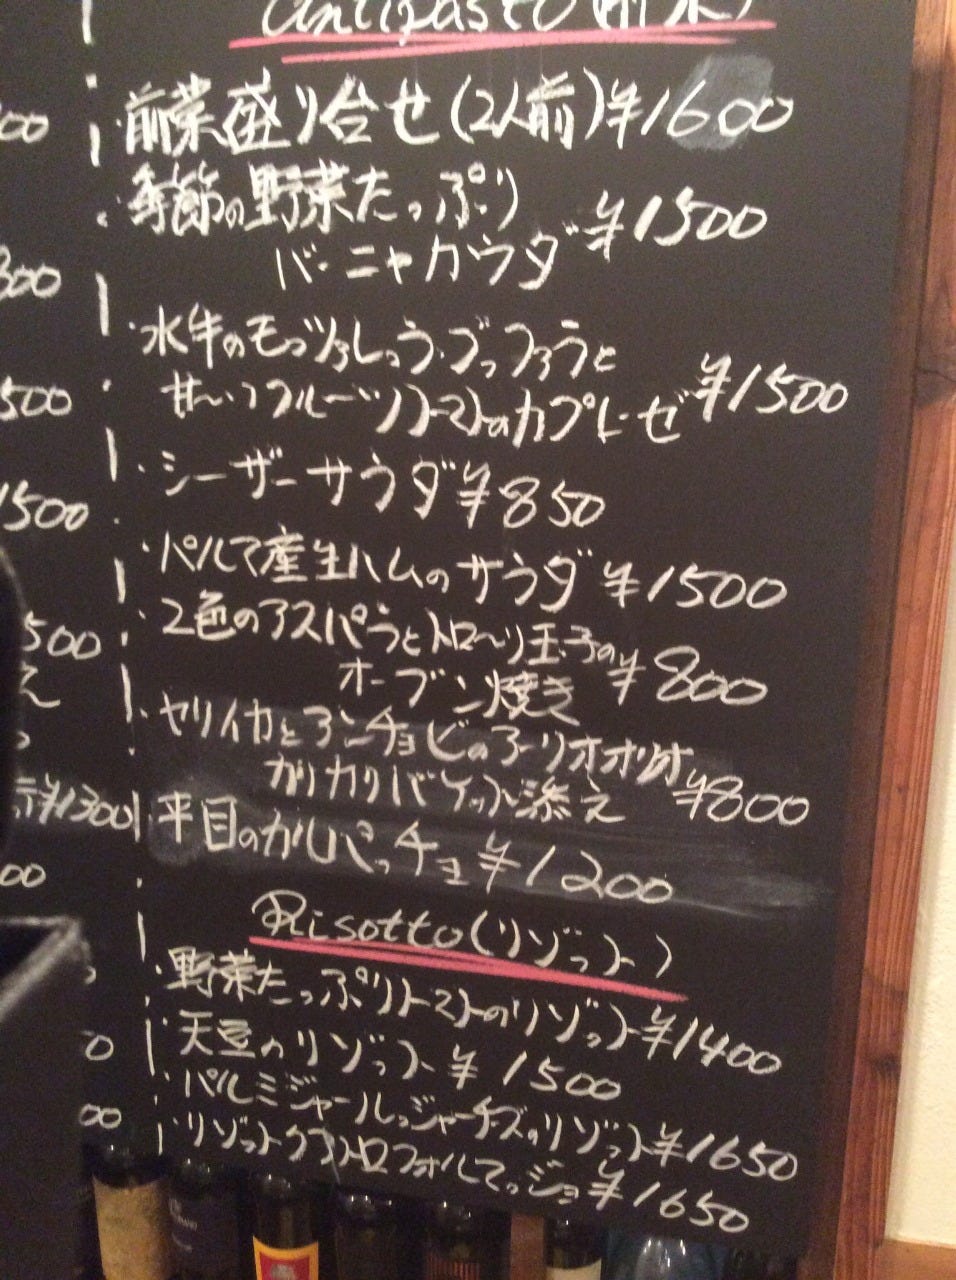 antipasto(前菜)
・前菜盛り合せ(2人前)¥1600
・季節の野菜たっぷり
バーニャカウダ ¥1500
・水牛のモッツァレッラ・ブッファラと
甘〜いフルーツトマトのカプレーゼ ¥1500
・シーザーサラダ ¥850
・パルマ産生ハムのサラダ ¥1500
・2色のアスパラとトロ〜リ玉子の
オーブン焼き ¥800
・ヤリイカとアンチョビのアーリオオーリオ
カリカリバケット添え ¥800
・平目のカルパッチョ ¥1200
Risotto(リゾット)
・野菜たっぷりトマトのリゾット ¥1400
・天豆のリゾット ¥1500
・パルミジャールッジャーチーズのリゾット ¥1650
・リゾットクアトロフォルマッジョ ¥1650
00
300
500
1500
500
え
¥1300
00
0
00